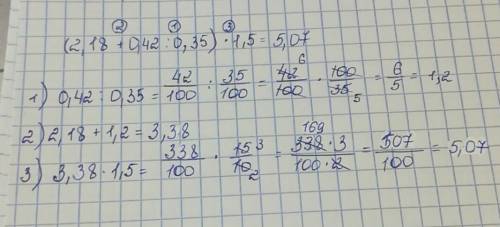 ② ① ③
(2,18 + 0,42 : 0,35) · 1,5 = 5,07
1) 0,42 : 0,35 = 42/100 : 35/100 = 42 6/100 · 100/35 5 = 6/5 = 1,2
2) 2,18 + 1,2 = 3,38
3) 3,38 · 1,5 = 338/100 · 15 3/10 2 = 169 338 · 3/100 · 2 = 507/100 = 5,07